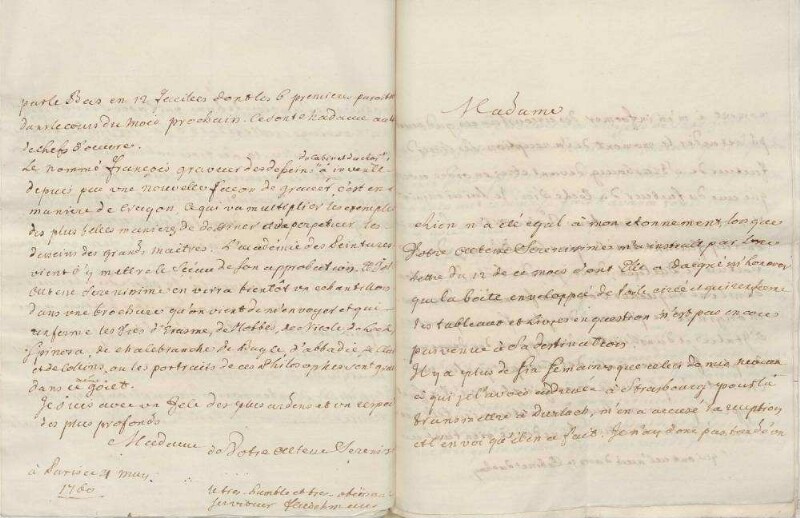 par le Bas en 12 feuilles dont les 6 premieres paroitr
dans le cours du mois prochain. Ce sont Madame aut
de chefs d'oeuvre.
Le nommé François graveur des desseins du Cabinet du Roy a inventé
depuis peu une nouvelle façon de graver, c'est en
maniere de crayon. Ce qui va multiplier les exemples
des plus belles manieres de dessiner et perpetuer les
desseins des grands maitres. L'academie de Peintures
vient d'y mettre le Sceau de son approbation. Votre
Altesse Serenissime en verra bientôt un echantillon
dans une brochure qu'on vient de m'envoyer et qui
renferme les Vies d'Erasme, de Hobbes, de Nicole, de Lock
Spinosa, de Malebranche, de Bayle, d'Abbadie, de Clar
et de Collins, ou les portraits de ces Philosophes sont grav
dans ce même goût.
Je suis avec un Zele des plus ardens et un respec
des plus profonds
Madame
de Votre Altesse Sereniss
à Paris ce may
1760
le tres humble et tres obeissan
serviteur
Madame
Rien n'a été egal à mon etonnement, lorsque
Votre Altesse Serenissime m'a instruit par la
lettre du 12 de ce mois dont Elle a daigné m'honorer
que la boëte enveloppée de toile cirée et qui renferme
les tableaux et livres en question n'est pas encore
parvenue à Sa destination
Il y a plus de six semaines que celui
à qui je l'avois addressé à Strasbourg pour la
transmettre à Durlach, m'en a accusé la reception
et l'envoi qu'il en a fait. Je n'ay donc pas tardé un